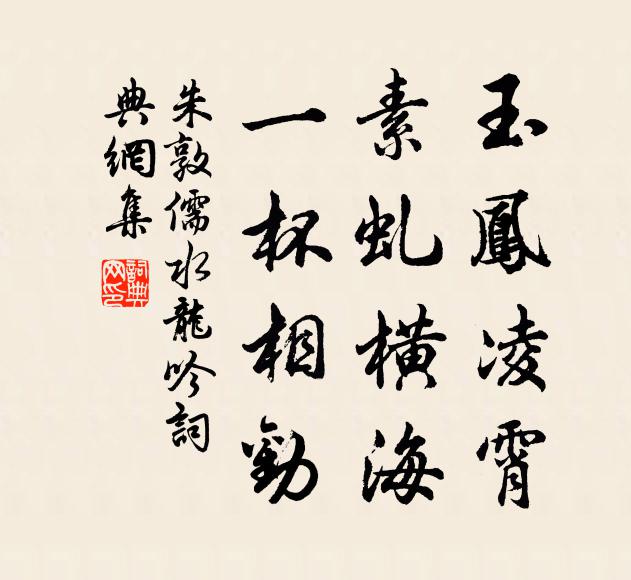 玉鳳凌霄
素虬橫海
一杯相勸
朱敦儒水龍吟詞
典網集
詞典网印